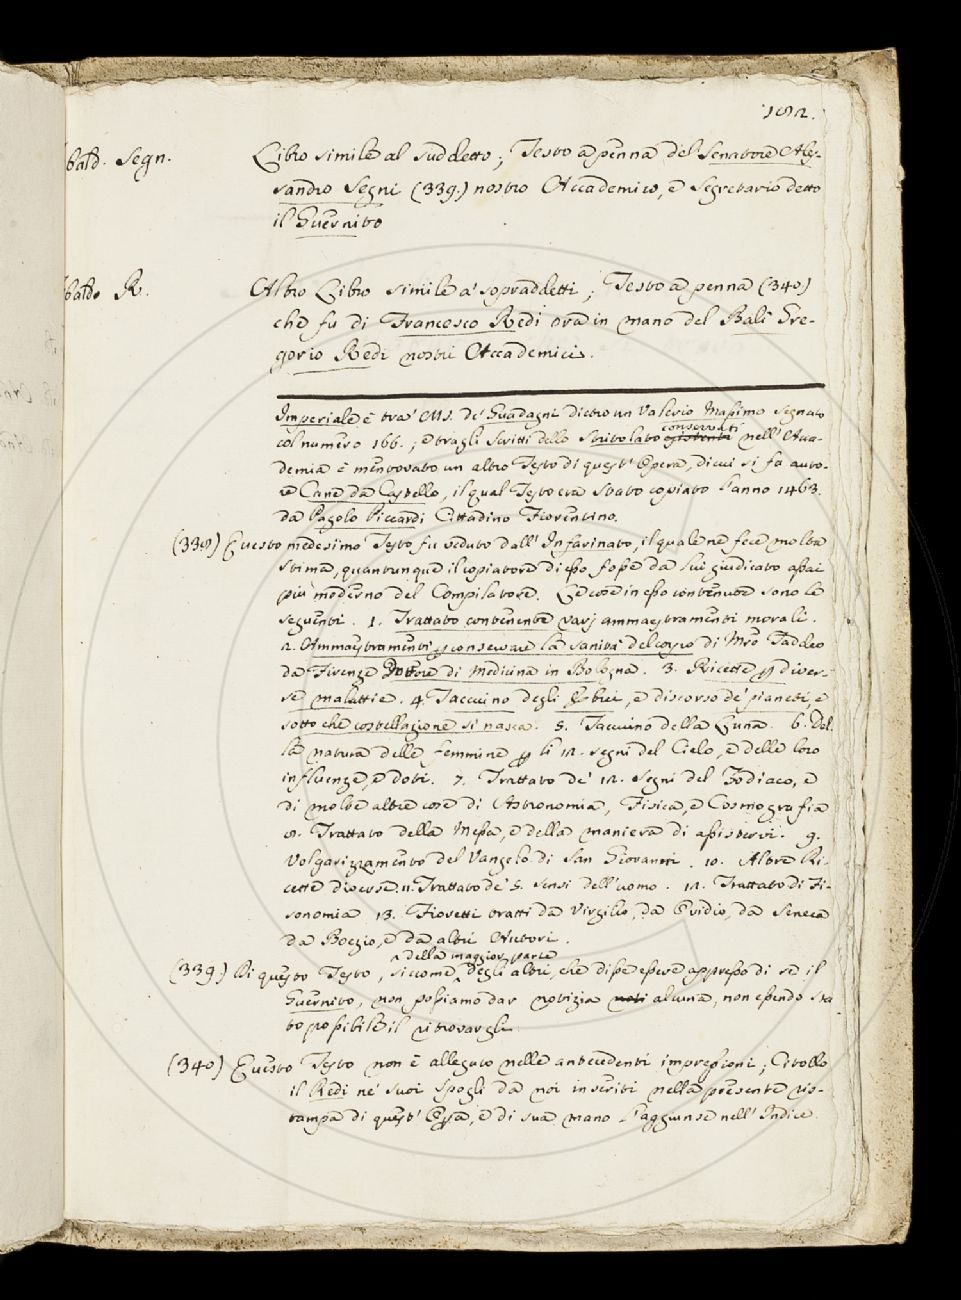 192.
bald. Segn.
Libro simile al suddetto; Testo a penna del Senatore Ales-
sandro Segni (339.) nostro Accademico, e Segretario detto
il Guernito
baldo R.
Altro Libro simile a' sopraddetti; Testo a penna (340)
che fu di Francesco Redi ora in mano del Balì Gre-
gorio Redi nostri Accademici.
Imperiale è tra' MS. de' Guadagni dietro un Valerio Massimo segnato
col numero 166.; e tragli scritti dello Stritolato esistenti conservati nell'Acca-
demia è mentovato un altro Testo di quest'Opera, di cui si fa auto-
re Cane da Castello, il qual Testo era stato copiato l'anno 1463.
da Pagolo Riccardi Cittadino Fiorentino.
(338) Questo medesimo Testo fu veduto dall'Infarinato, il quale ne fece molta
stima, quantunque il copiatore di esso fosse da lui giudicato assai
più moderno del Compilatore. Le cose in esso contenute sono le
seguenti. 1. Trattato contenente varj ammaestramenti morali.
2. Ammaestramenti p conservare la sanità del corpo di Mro Taddeo
da Firenze Dottore di Medicina in Bologna. 3. Ricette p diver-
se malattie. 4. Taccuino degli Ebrei, e discorso de' pianeti, e
sotto che costellazione si nasca. 5. Taccuino della Luna. 6. Del-
la natura delle femmine p li 12. segni del Cielo, e delle loro
influenze, e doti. 7. Trattato de' 12. segni del Zodiaco, e
di molte altre cose di Astronomia, Fisica, e Cosmografia
8. Trattato della Messa, e della maniera di assistervi. 9.
Volgarizzamento del Vangelo di San Giovanni. 10. Altre Ri-
cette diverse. 11. Trattato de' 5. sensi dell'uomo. 12. Trattato di Fi-
sonomia 13. Fioretti tratti da Virgilio, da Ovidio, da Seneca
da Boezio, e da altri Autori.
(339.) Di questo Testo, siccome della maggior parte degli altri, che disse essere appresso di se il
Guernito, non possiamo dar notizia noti alcuna, non essendo sta
to possibile il ritrovargli.
(340) Questo Testo non è allegato nelle antecedenti impressioni; Citollo
il Redi ne' suoi Spogli da noi inseriti nella presente ris-
tampa di quest'Opa, e di sua mano l'aggiunse nell'Indice